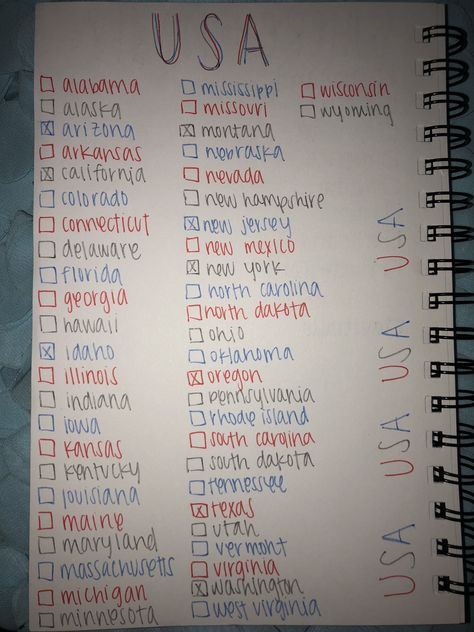 USA
alabama
alaska
arizona
arkansas
california
colorado
connecticut
delaware
florida
georgia
hawaii
idaho
illinois
indiana
iowa
kansas
kentucky
louisiana
maine
maryland
massachusetts
michigan
minnesota
mississippi
missouri
montana
nebraska
nevada
new hampshire
new jersey
new mexico
new york
north carolina
north dakota
ohio
oklahoma
oregon
pennsylvania
rhode island
south carolina
south dakota
tennessee
texas
utah
vermont
virginia
washington
west virginia
wisconsin
wyoming
USA
USA
USA
USA